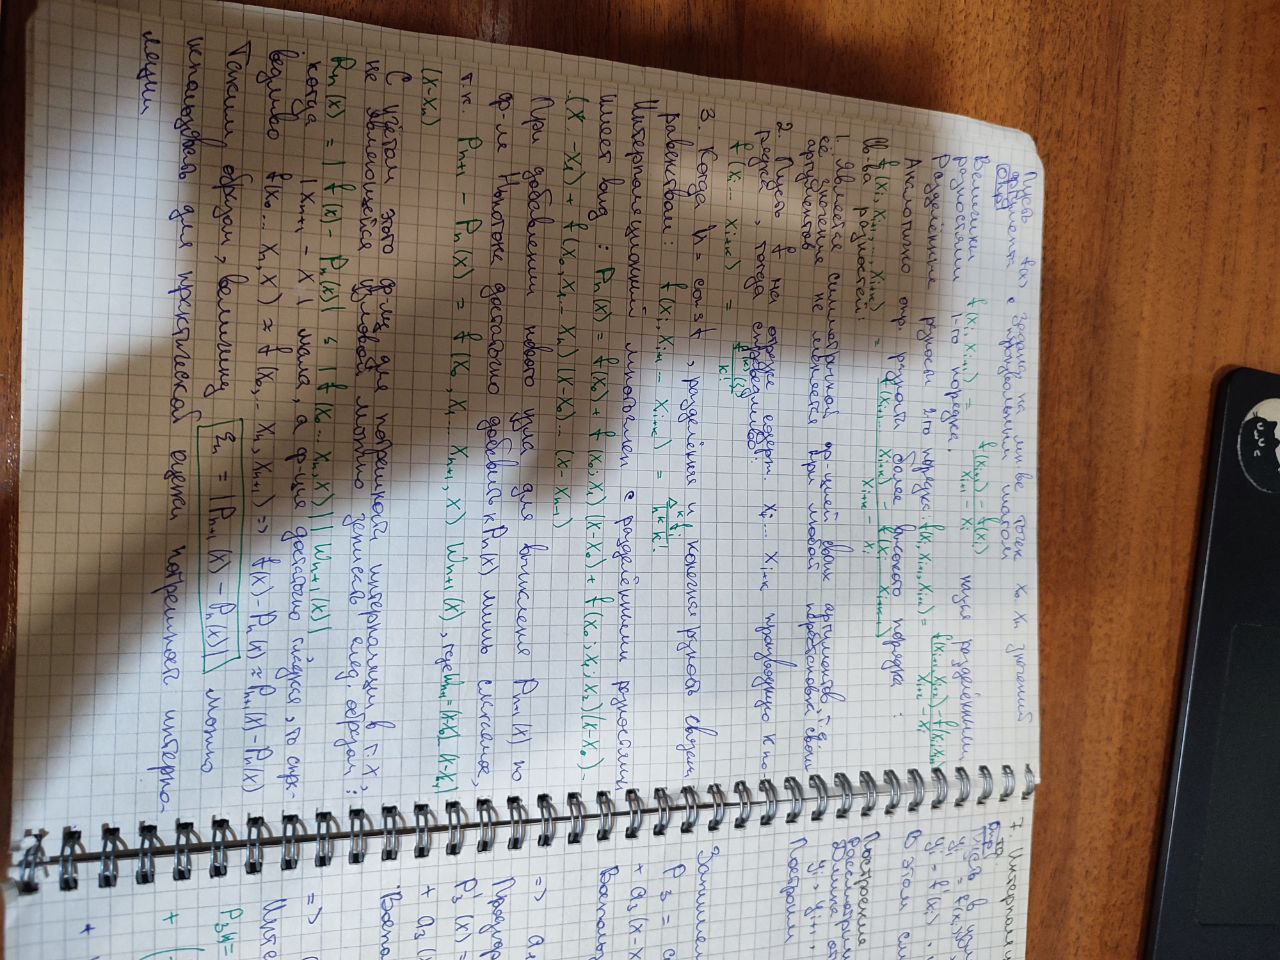 Пусть f(x) задана на мн-ве точек x₀ xₙ значений
аргумента с произвольным шагом
Опр
Величины f(xᵢ, xᵢ₊₁) = (f(xᵢ₊₁) - f(xᵢ))/(xᵢ₊₁ - xᵢ) назыв разделёнными
разностями 1-го порядка.
Разделённые разности 2-го порядка: f(xᵢ, xᵢ₊₁, xᵢ₊₂) = (f(xᵢ₊₁, xᵢ₊₂) - f(xᵢ, xᵢ₊₁))/(xᵢ₊₂ - xᵢ)
Аналогично опр. разности более высокого порядка:
f(xᵢ, xᵢ₊₁, ..., xᵢ₊ₖ) = (f(xᵢ₊₁... xᵢ₊ₖ) - f(xᵢ ... xᵢ₊ₖ₋₁))/(xᵢ₊ₖ - xᵢ)
Св-ва разностей:
1. Является симметричной ф-цией своих аргументов, т.е.
её значение не меняется при любой перестановке своих
аргументов
2. Пусть f на отрезке содерж. xᵢ... xᵢ₊ₖ производную k по-
рядка, тогда справедливо:
f(xᵢ... xᵢ₊ₖ) = f⁽ᵏ⁾(ξ)/k!
3. Когда h = const, разделённая и конечная разность связаны
равенством: f(xᵢ, xᵢ₊₁ ... xᵢ₊ₖ) = Δᵏfᵢ/(hᵏ k!)
Интерполяционный многочлен с разделёнными разностями
имеет вид: Pₙ(x) = f(x₀) + f(x₀; x₁)(x-x₀) + f(x₀; x₁; x₂)(x-x₀)·
·(x - x₁) + f(x₀, x₁... xₙ)(x-x₀)...(x-xₙ₋₁)
При добавлении нового узла для вычисления Pₙ₊₁(x) по
ф-ле Ньютона достаточно добавить к Pₙ(x) лишь слагаемое,
т.к. Pₙ₊₁ - Pₙ(x) = f(x₀, x₁... xₙ₊₁, x) Wₙ₊₁(x), где Wₙ₊₁=(x-x₀)...(x-xₙ₋₁)
(x-xₙ)
С учётом этого ф-лу для погрешности интерполяции в т. x,
не являющейся узловой можно записать след. образом:
Rₙ(x) = |f(x) - Pₙ(x)| ≤ |f(x₀... xₙ, x)||Wₙ₊₁(x)|,
когда |xₙ₊₁ - x| мала, а ф-ция достаточно гладкая, то спра-
ведливо f(x₀... xₙ, x) ≈ f(x₀,... xₙ, xₙ₊₁) => f(x)-Pₙ(x) ≈ Pₙ₊₁(x)-Pₙ(x)
Таким образом, величину εₙ = |Pₙ₊₁(x) - Pₙ(x)| можно
использовать для практической оценки погрешности интерпо-
ляции
7. Интерполяц
Опр
Пусть в узл
В этом сл
Построение
Рассмотрим
Длина от
yᵢ, yᵢ₊₁,
Построим
Запишем
P₃ =
+ a₃(x-x
Воспольз
=> a
P₃'(x) =
+ a₃(
Воспо
=>
Инте
P₃
+
+